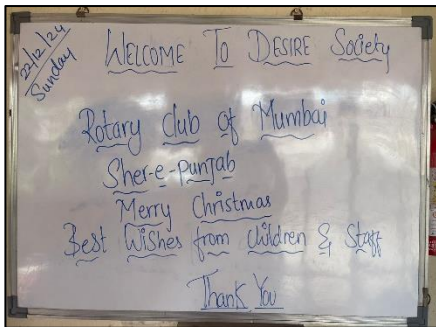 22/12/24
Sunday
WELCOME TO DESIRE Society
Rotary Club of Mumbai
Sher-e-punjab
Merry Christmas
Best Wishes from children & Staff
Thank You